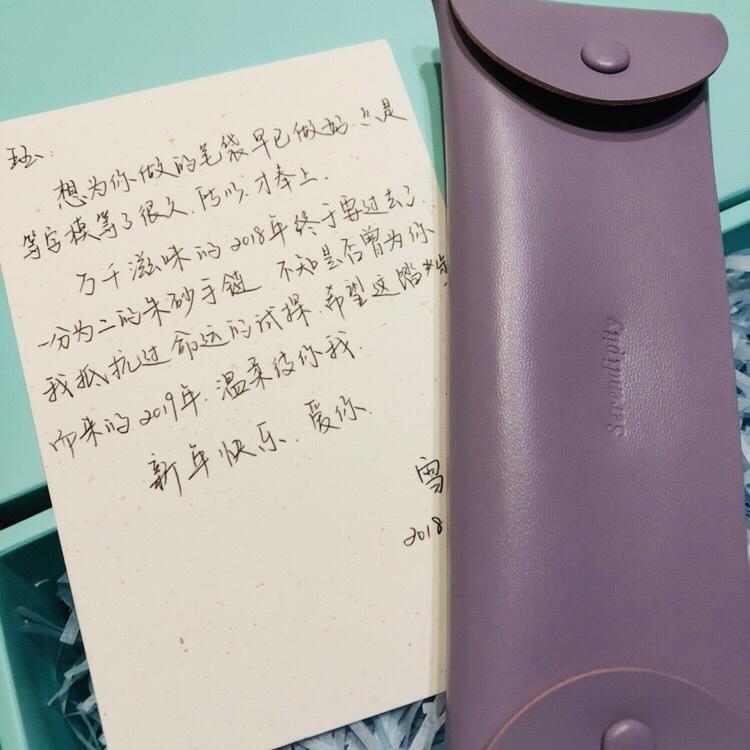 珏:
想为你做的笔袋早已做好.只是
等字模等了很久.所以.才奉上.
万千滋味的2018年终于要过去了.
一分为二的朱砂手链 不知是否曾为你
我抵抗过命运的试探.希望这踏光
而来的2019年.温柔待你我.
新年快乐.爱你.
雪
2018
Serendipity